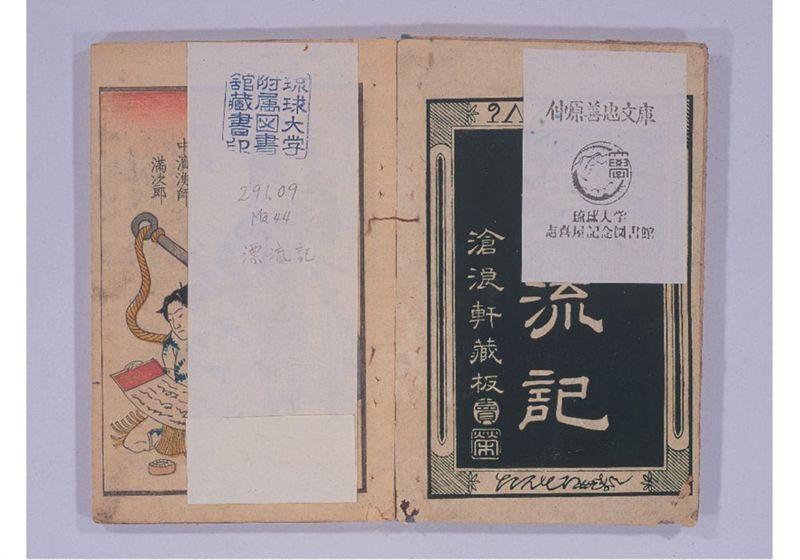 中濱漁師
満次郎
琉球大学
附属図書
館蔵書印
291.09
Ma 44
漂流記
仲原善忠文庫
琉球大学
志喜屋記念図書館
流記
滄浪軒藏板